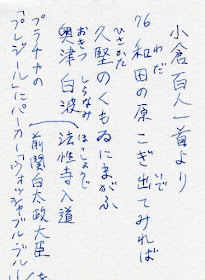 小倉百人一首より
わだ いで
76 和田の原 こぎ出てみれば
ひさかた
久堅のくもゐにまがふ
おきつ しらなみ ほっしょうじ
奥津 白波 法性寺入道
前関白太政大臣
プラチナの
「プレジール」にパーカー「ウォッシャブルブルー